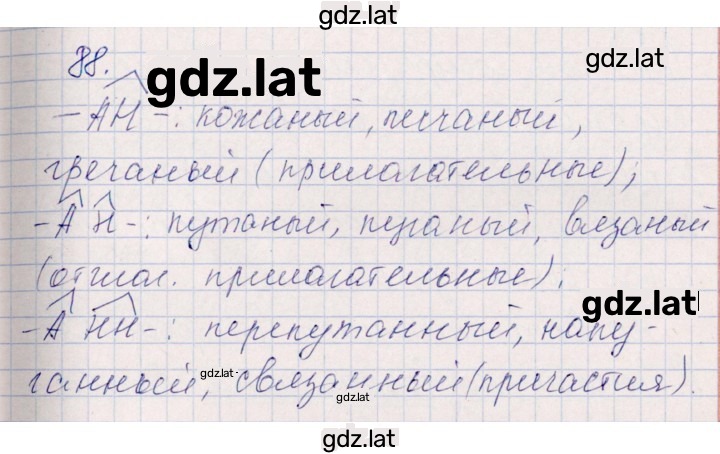 gdz.lat
88.
gdz.lat
gdz.lat
-АН-: кожаный, песчаный,
гречаный (прилагательные);
-А Н-: путаный, пуганый, вязаный
(отглаг. прилагательные);
gdz.lat
-А НН-: перепутанный, напу-
ганный, связанный (причастия).
gdz.lat
gdz.lat
gdz.lat